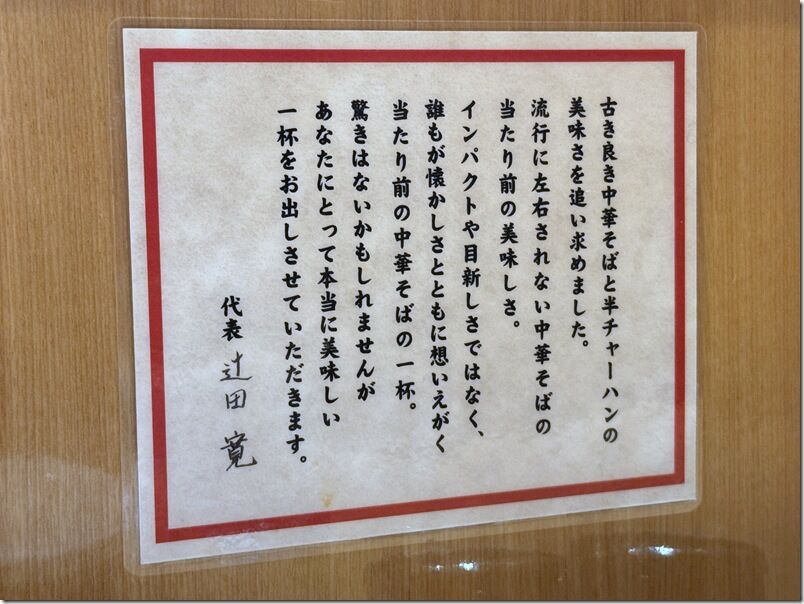 古き良き中華そばと半チャーハンの
美味さを追い求めました。
流行に左右されない中華そばの
当たり前の美味しさ。
インパクトや目新しさではなく、
誰もが懐かしさとともに想いえがく
当たり前の中華そばの一杯。
驚きはないかもしれませんが
あなたにとって本当に美味しい
一杯をお出しさせていただきます。
代表 辻田 寛